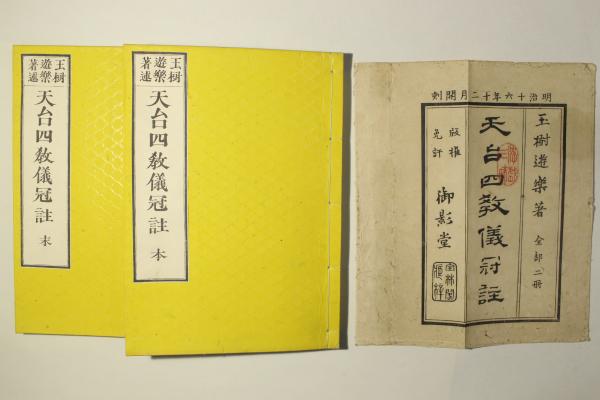 玉樹遊樂著述
天台四教儀冠註 本
玉樹遊樂著述
天台四教儀冠註 末
明治十六年十二月開刻
玉樹遊樂著 全部二冊
天台四教儀冠註
版權免許
御影堂